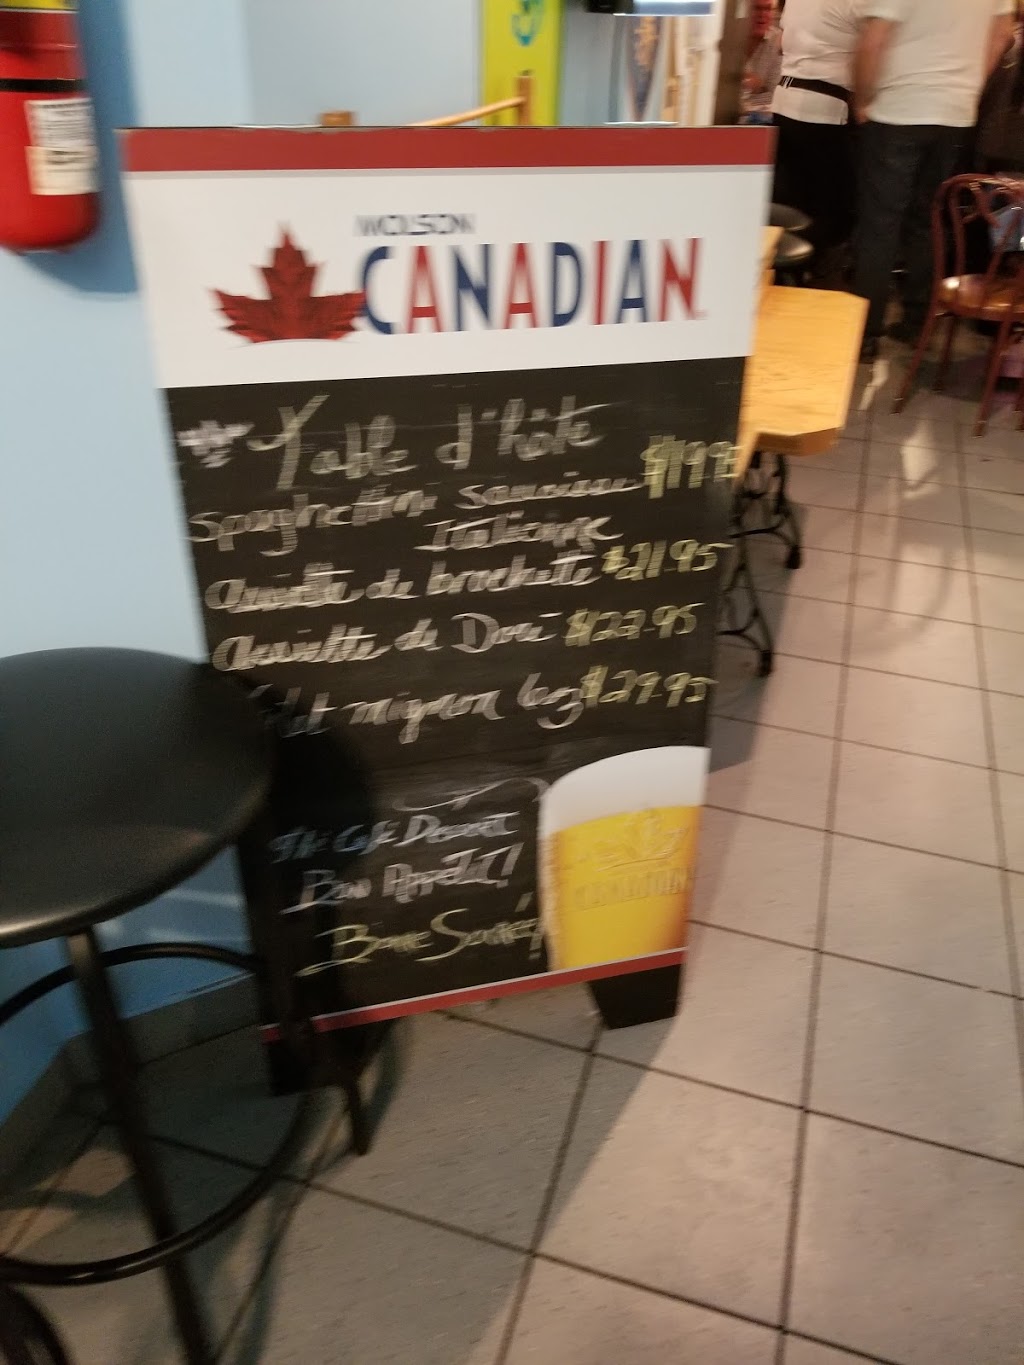 MOLSON
CANADIAN
Table d'hôte
Spaghettini saucisse $19.95
Italienne
assiette de brochette $21.95
assiette de Doré $22.95
filet mignon 6oz $29.95
Thé Café Dessert
Bon Appétit!
Bonne Soirée!
CANADIAN